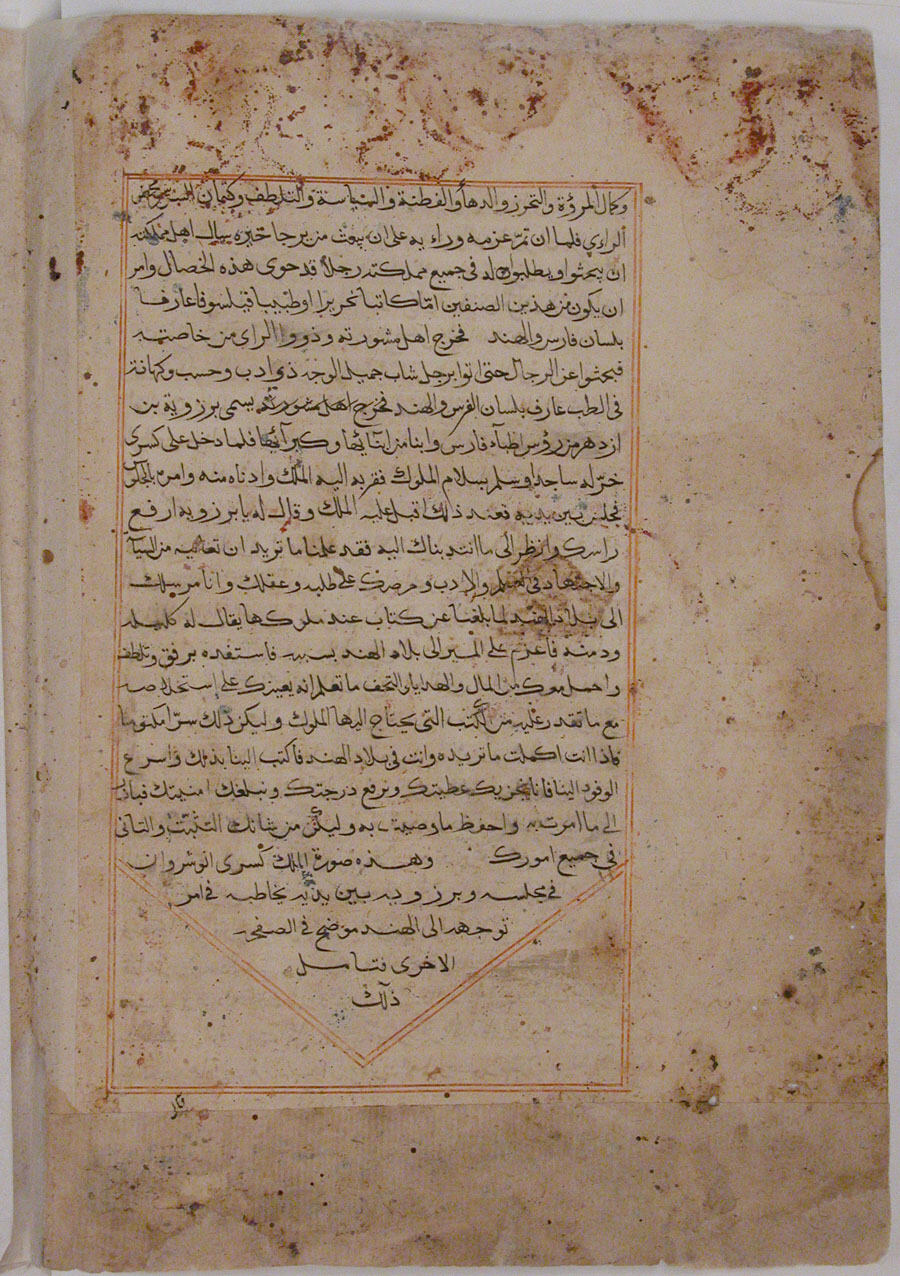 وكمال المروة والتحرز والدهاء والفطنة والسياسة والتلطف وكتمان السر
الراي فلما ان تم عزمه وراءيه على ان يبعث من يرجا خيره سال اهل مملكته
ان يبحثوا ويطلبوا له في جميع مملكته رجلا قد حوى هذه الخصال وامر
ان يكون من هذين الصنفين اما كاتبا نحريرا او طبيبا فيلسوفا عارفا
بلسان فارس والهند فخرج اهل مشورته وذووا الراي من خاصته
فبحثوا عن الرجال حتى اتوا برجل شاب جميل الوجه ذي ادب وحسب وكهانة
في الطب عارف بلسان الفرس والهند فخرج اهل مشورته يسمى برزوية بن
ازدهر من رؤس اطباء فارس وابنا من ابنائها وكبرآئها فلما دخل على كسرى
خر له ساجدا وسلم بسلام الملوك فقربه اليه الملك وادناه منه وامره بالجلوس
فجلس بين يديه فعند ذلك اقبل عليه الملك وقال له يا برزويه ارفع
راسك وانظر الى ما انتدبناك اليه فقد علمنا ما تريد ان تعانيه من
والاجتهاد في العلم والادب وحرصك على طلبه وعقلك وانا مرسلك
الى بلاد الهند لما بلغنا عن كتاب عند ملوكها يقال له كليله
ودمنه فاعزم على المسير الى بلاد الهند بسببه فاستفده برفق وتلطف
واحمل معك من المال والهدايا والتحف ما تعلم انه يعينك على إستخلاصه
مع ما تقدر عليه من الكتب التي يحتاج اليها الملوك وليكن ذلك سرا مكتوما
فاذا انت اكملت ما تريده وانت في بلاد الهند فاكتب الينا بذلك واسرع
الوفود الينا فانا نجزيك عطيتك ونرفع درجتك ونبلغك امنيتك فبادر
الى ما امرت به واحفظ ما وصيتك به وليكن من شانك التثبت والتانى
في جميع امورك وهذه صورة الملك كسرى انوشروان
في مجلسه وبرزويه بين يديه يخاطبه في امر
توجهه الى الهند موضح في الصفحة
الاخرى فتامل
ذلك